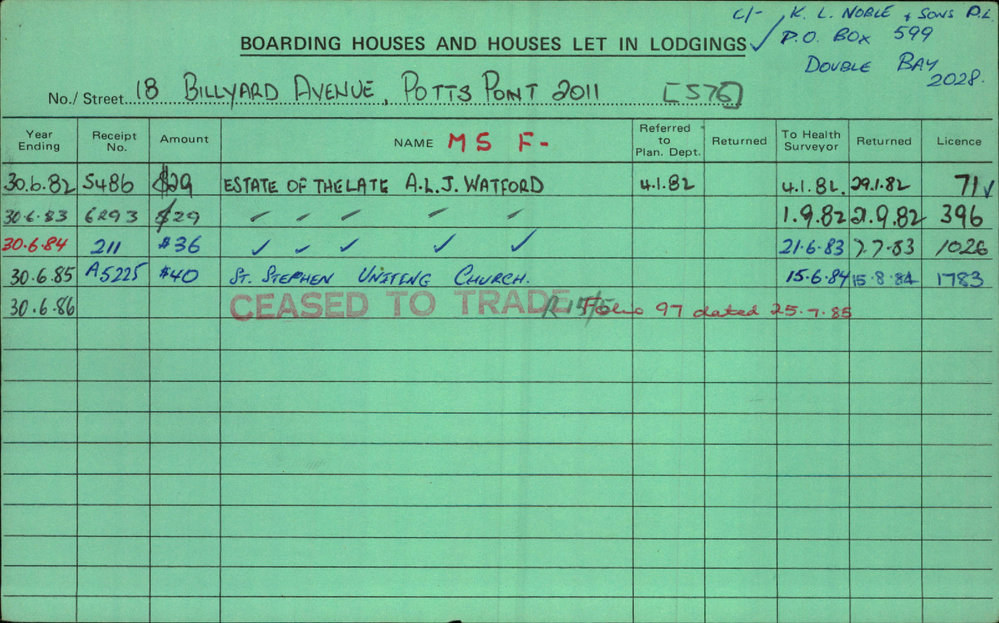 c/- K. L. NOBLE & SONS P.L.
P.O. BOX 599
DOUBLE BAY
2028.
BOARDING HOUSES AND HOUSES LET IN LODGINGS ✓
No./ Street 18 BILLYARD AVENUE, POTTS POINT 2011 [576]
Year Ending Receipt No. Amount NAME MS F- Referred to Plan. Dept. Returned To Health Surveyor Returned Licence
30.6.82 5486 $29 ESTATE OF THE LATE A.L.J. WATFORD 4.1.82 4.1.82. 29.1.82 71 ✓
30.6.83 6293 $29 ✓ ✓ ✓ ✓ ✓ 1.9.82 21.9.82 396
30.6.84 211 $36 ✓ ✓ ✓ ✓ ✓ 21.6.83 7.7.83 1026
30.6.85 A5225 $40 ST. STEPHEN UNITING CHURCH. 15.6.84 15.8.84 1783
30.6.86 CEASED TO TRADE Folio 97 dated 25.7.85